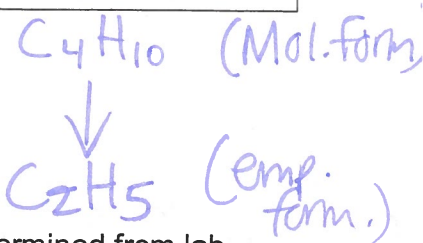 C₄H₁₀ (Mol. form,
C₂H₅ (emp.
form.)
ermined from lab